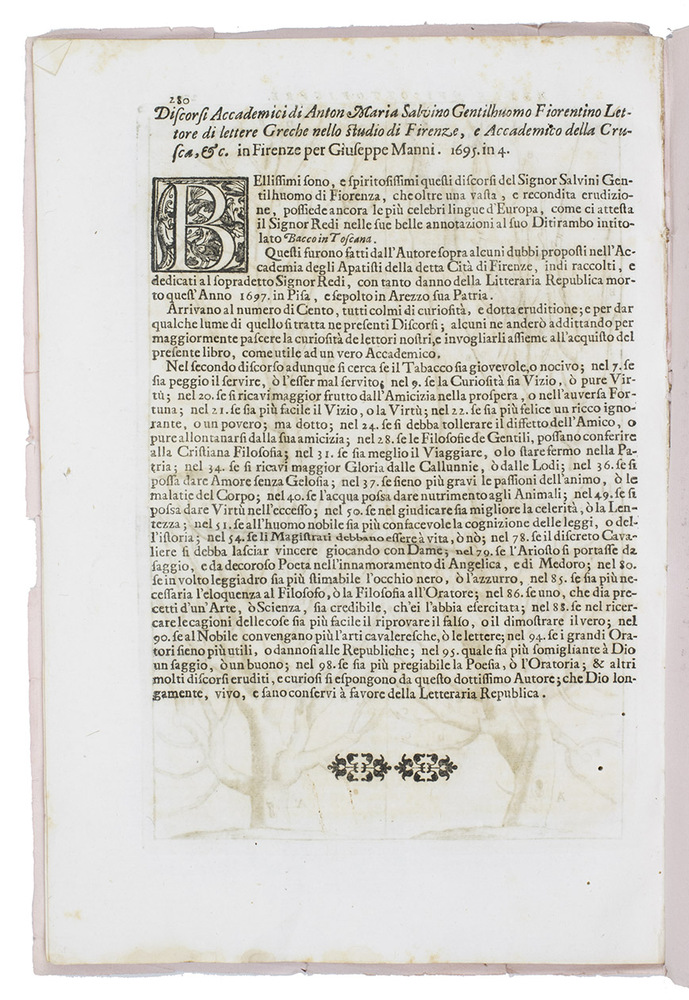 280
Discorsi Accademici di Anton Maria Salvino Gentilhuomo Fiorentino Let-
tore di lettere Greche nello studio di Firenze, e Accademico della Cru-
sca, &c. in Firenze per Giuseppe Manni. 1695. in 4.
BEllissimi sono, e spiritosissimi questi discorsi del Signor Salvini Gen-
tilhuomo di Fiorenza, che oltre una vasta, e recondita erudizio-
ne, possiede ancora le più celebri lingue d'Europa, come ci attesta
il Signor Redi nelle sue belle annotazioni al suo Ditirambo intito-
lato Bacco in Toscana.
Questi furono fatti dall'Autore sopra alcuni dubbi proposti nell'Ac-
cademia degli Apatisti della detta Cità di Firenze, indi raccolti, e
dedicati al sopradetto Signor Redi, con tanto danno della Litteraria Republica mor-
to quest'Anno 1697. in Pisa, e sepolto in Arezzo sua Patria.
Arrivano al numero di Cento, tutti colmi di curiosità, e dotta eruditione; e per dar
qualche lume di quello si tratta ne presenti Discorsi; alcuni ne anderò addittando per
maggiormente pascere la curiosità de lettori nostri, e invogliarli assieme all'acquisto del
presente libro, come utile ad un vero Accademico.
Nel secondo discorso adunque si cerca se il Tabacco sia giovevole, o nocivo; nel 7. se
sia peggio il servire, ò l'esser mal servito; nel 9. se la Curiosità sia Vizio, ò pure Vir-
tù; nel 20. se si ricavi maggior frutto dall'Amicizia nella prospera, o nell'auversa For-
tuna; nel 21. se sia più facile il Vizio, o la Virtù; nel 22. se sia più felice un ricco igno-
rante, o un povero; ma dotto; nel 24. se si debba tollerare il diffetto dell'Amico, o
pure allontanarsi dalla sua amicizia; nel 28. se le Filosofie de Gentili, possano conferire
alla Cristiana Filosofia; nel 31. se sia meglio il Viaggiare, o lo stare fermo nella Pa-
tria; nel 34. se si ricavi maggior Gloria dalle Callunnie, ò dalle Lodi; nel 36. se si
possa dare Amore senza Gelosia; nel 37. se sieno più gravi le passioni dell'animo, ò le
malatie del Corpo; nel 40. se l'acqua possa dare nutrimento agli Animali; nel 49. se si
possa dare Virtù nell'eccesso; nel 50. se nel giudicare sia migliore la celerità, ò la Len-
tezza; nel 51. se all'huomo nobile sia più confacevole la cognizione delle leggi, o del-
l'istoria; nel 54. se li Magistrati debbano essere à vita, ò nò; nel 78. se il discreto Cava-
liere si debba lasciar vincere giocando con Dame; nel 79. se l'Ariosto si portasse da
saggio, e da decoroso Poeta nell'innamoramento di Angelica, e di Medoro; nel 80.
se in volto leggiadro sia più stimabile l'occhio nero, ò l'azzurro, nel 85. se sia più ne-
cessaria l'eloquenza al Filosofo, ò la Filosofia all'Oratore; nel 86. se uno, che dia pre-
cetti d'un'Arte, ò Scienza, sia credibile, ch'ei l'abbia esercitata; nel 88. se nel ricer-
care le cagioni delle cose sia più facile il riprovare il falso, o il dimostrare il vero; nel
90. se al Nobile convengano più l'arti cavaleresche, ò le lettere; nel 94. se i grandi Ora-
tori sieno più utili, o dannosi alle Republiche; nel 95. quale sia più somigliante à Dio
un saggio, ò un buono; nel 98. se sia più pregiabile la Poesia, ò l'Oratoria; & altri
molti discorsi eruditi, e curiosi si espongono da questo dottissimo Autore; che Dio lon-
gamente, vivo, e sano conservi à favore della Letteraria Republica.